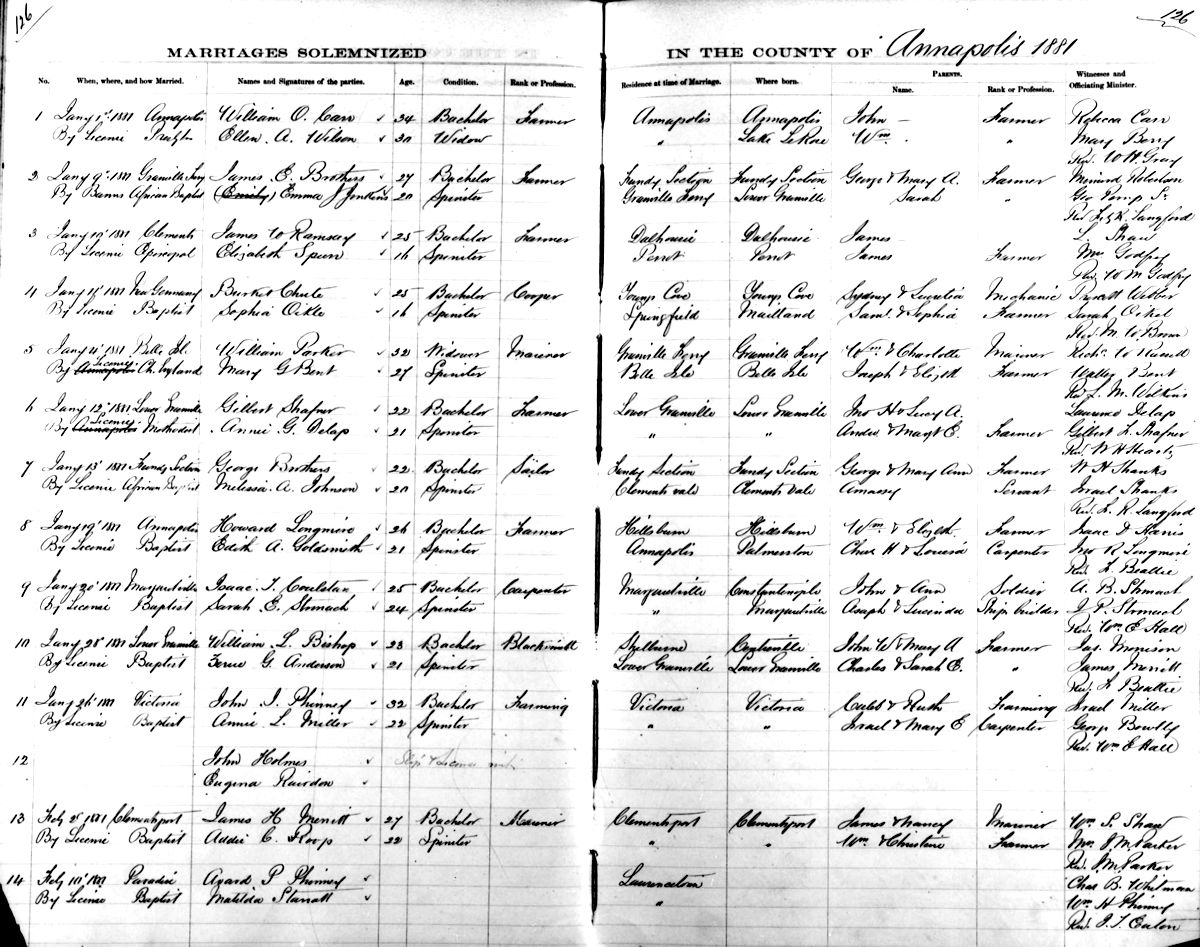 126 126
MARRIAGES SOLEMNIZED IN THE COUNTY OF Annapolis 1881
No. When, where, and how Married. Names and Signatures of the parties. Age. Condition. Rank or Profession. Residence at time of Marriage. Where born. PARENTS. Name. Rank or Profession. Witnesses and Officiating Minister.
1 Jany 1st 1881 Annapolis William O. Carr 24 Bachelor Farmer Annapolis Annapolis John — Farmer Rebecca Carr
By License Ellen A. Wilson 30 Widow " Lake LeRose Wm . " Mary Berry
Rev. W H Gray
2 Jany 9th 1881 Granville Ferry James E. Brothers 27 Bachelor Farmer Fundy Section Fundy Section George & Mary A. Farmer Robertson
By Banns African Baptist (Emily) Emma J Jenkins 20 Spinster Granville Ferry Lower Granville Sarah " Geo Sr
Rev Langford
3 Jany 19th 1881 Clements James W Ramsey 25 Bachelor Farmer Dalhousie Dalhousie James — L Shaw
By License Episcopal Elizabeth 16 Spinster Perrot Perrot James Farmer Mrs Godfrey
Rev. W M Godfrey
4 Jany 1881 New Germany Burket Chute 25 Bachelor Cooper Youngs Cove Youngs Cove Sydney & Lucretia Mechanic Webber
By License Baptist Sophia 16 Spinster Springfield Maitland Saml. & Sophia Farmer Sarah
Rev. M. W. Brown
5 Jany 1881 Belle Isl. William Parker 22 Widower Mariner Granville Ferry Granville Ferry Wm & Charlotte Mariner Richd W
By Annapolis License Ch. England Mary G Bent 27 Spinster Belle Isle Belle Isle Joseph & Elizth Farmer Bent
Rev L. M. Wilkins
6 Jany 12th 1881 Lower Granville Gilbert Shafner 22 Bachelor Farmer Lower Granville Lower Granville Jno H & Lucy A. Laurence Delap
By Annapolis License Methodist Annie G. Delap 21 Spinster " " Andw & Margt E. Farmer Gilbert L. Shafner
Rev. W H Heartz
7 Jany 13th 1881 Fundy Section George Brothers 22 Bachelor Sailor Fundy Section Fundy Section George & Mary Ann Farmer W H Shanks
By License African Baptist Melissa A. Johnson 20 Spinster Clements vale Clements Vale Servant Israel Shanks
Rev. Langford
8 Jany 19th 1881 Annapolis Howard Longmire 26 Bachelor Farmer Hillsburn Hillsburn Wm & Elizth. Farmer Isaac D Harris
By License Baptist Edith A. Goldsmith 21 Spinster Annapolis Palmerston Chas H & Louisa Carpenter Jno R Longmire
Rev. Beattie
9 Jany 20th 1881 Margaretville Isaac T. Coulstan 25 Bachelor Carpenter Margaretville Constantinople John & Ann Soldier A. B. Stronach
By License Baptist Sarah E. Stronach 24 Spinster " Margaretville Asaph & Lucinda Ship builder J P. Stronach
Rev. Wm E Hall
10 Jany 25th 1881 Lower Granville William L. Bishop 23 Bachelor Blacksmith Shelburne Centreville John W & Mary A Farmer Jas. Morrison
By License Baptist G. Anderson 21 Spinster Lower Granville Lower Granville Charles & Sarah E. " James Merritt
Rev. Beattie
11 Jany 26th 1881 Victoria John I. Phinney 32 Bachelor Farming Victoria Victoria Caleb & Ruth Farming Israel Miller
By License Baptist Annie L. Miller 22 Spinster " " Israel & Mary E Carpenter George Bowlby
Rev. Wm E Hall
12 John Holmes Slip & License
Eugina Rairdon
13 Feby 2d 1881 Clementsport James H Merritt 27 Bachelor Mariner Clementsport Clementsport James & Nancy Mariner Wm S. Shaw
By License Baptist Addie C. Roop 22 Spinster " " Wm & Christine Farmer Mrs J M Parker
Rev. J M Parker
14 Feby 10th 1881 Paradise Avard P Phinney Laurencetown Chas B. Whitman
By License Baptist Matilda Starratt " Wm H Phinney
Rev. J. T. Eaton